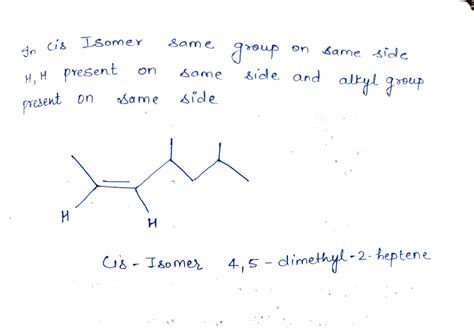 In cis Isomer same group on same side
H, H present on same side and alkyl group
present on same side
H
H
Cis - Isomer 4,5 - dimethyl-2-heptene